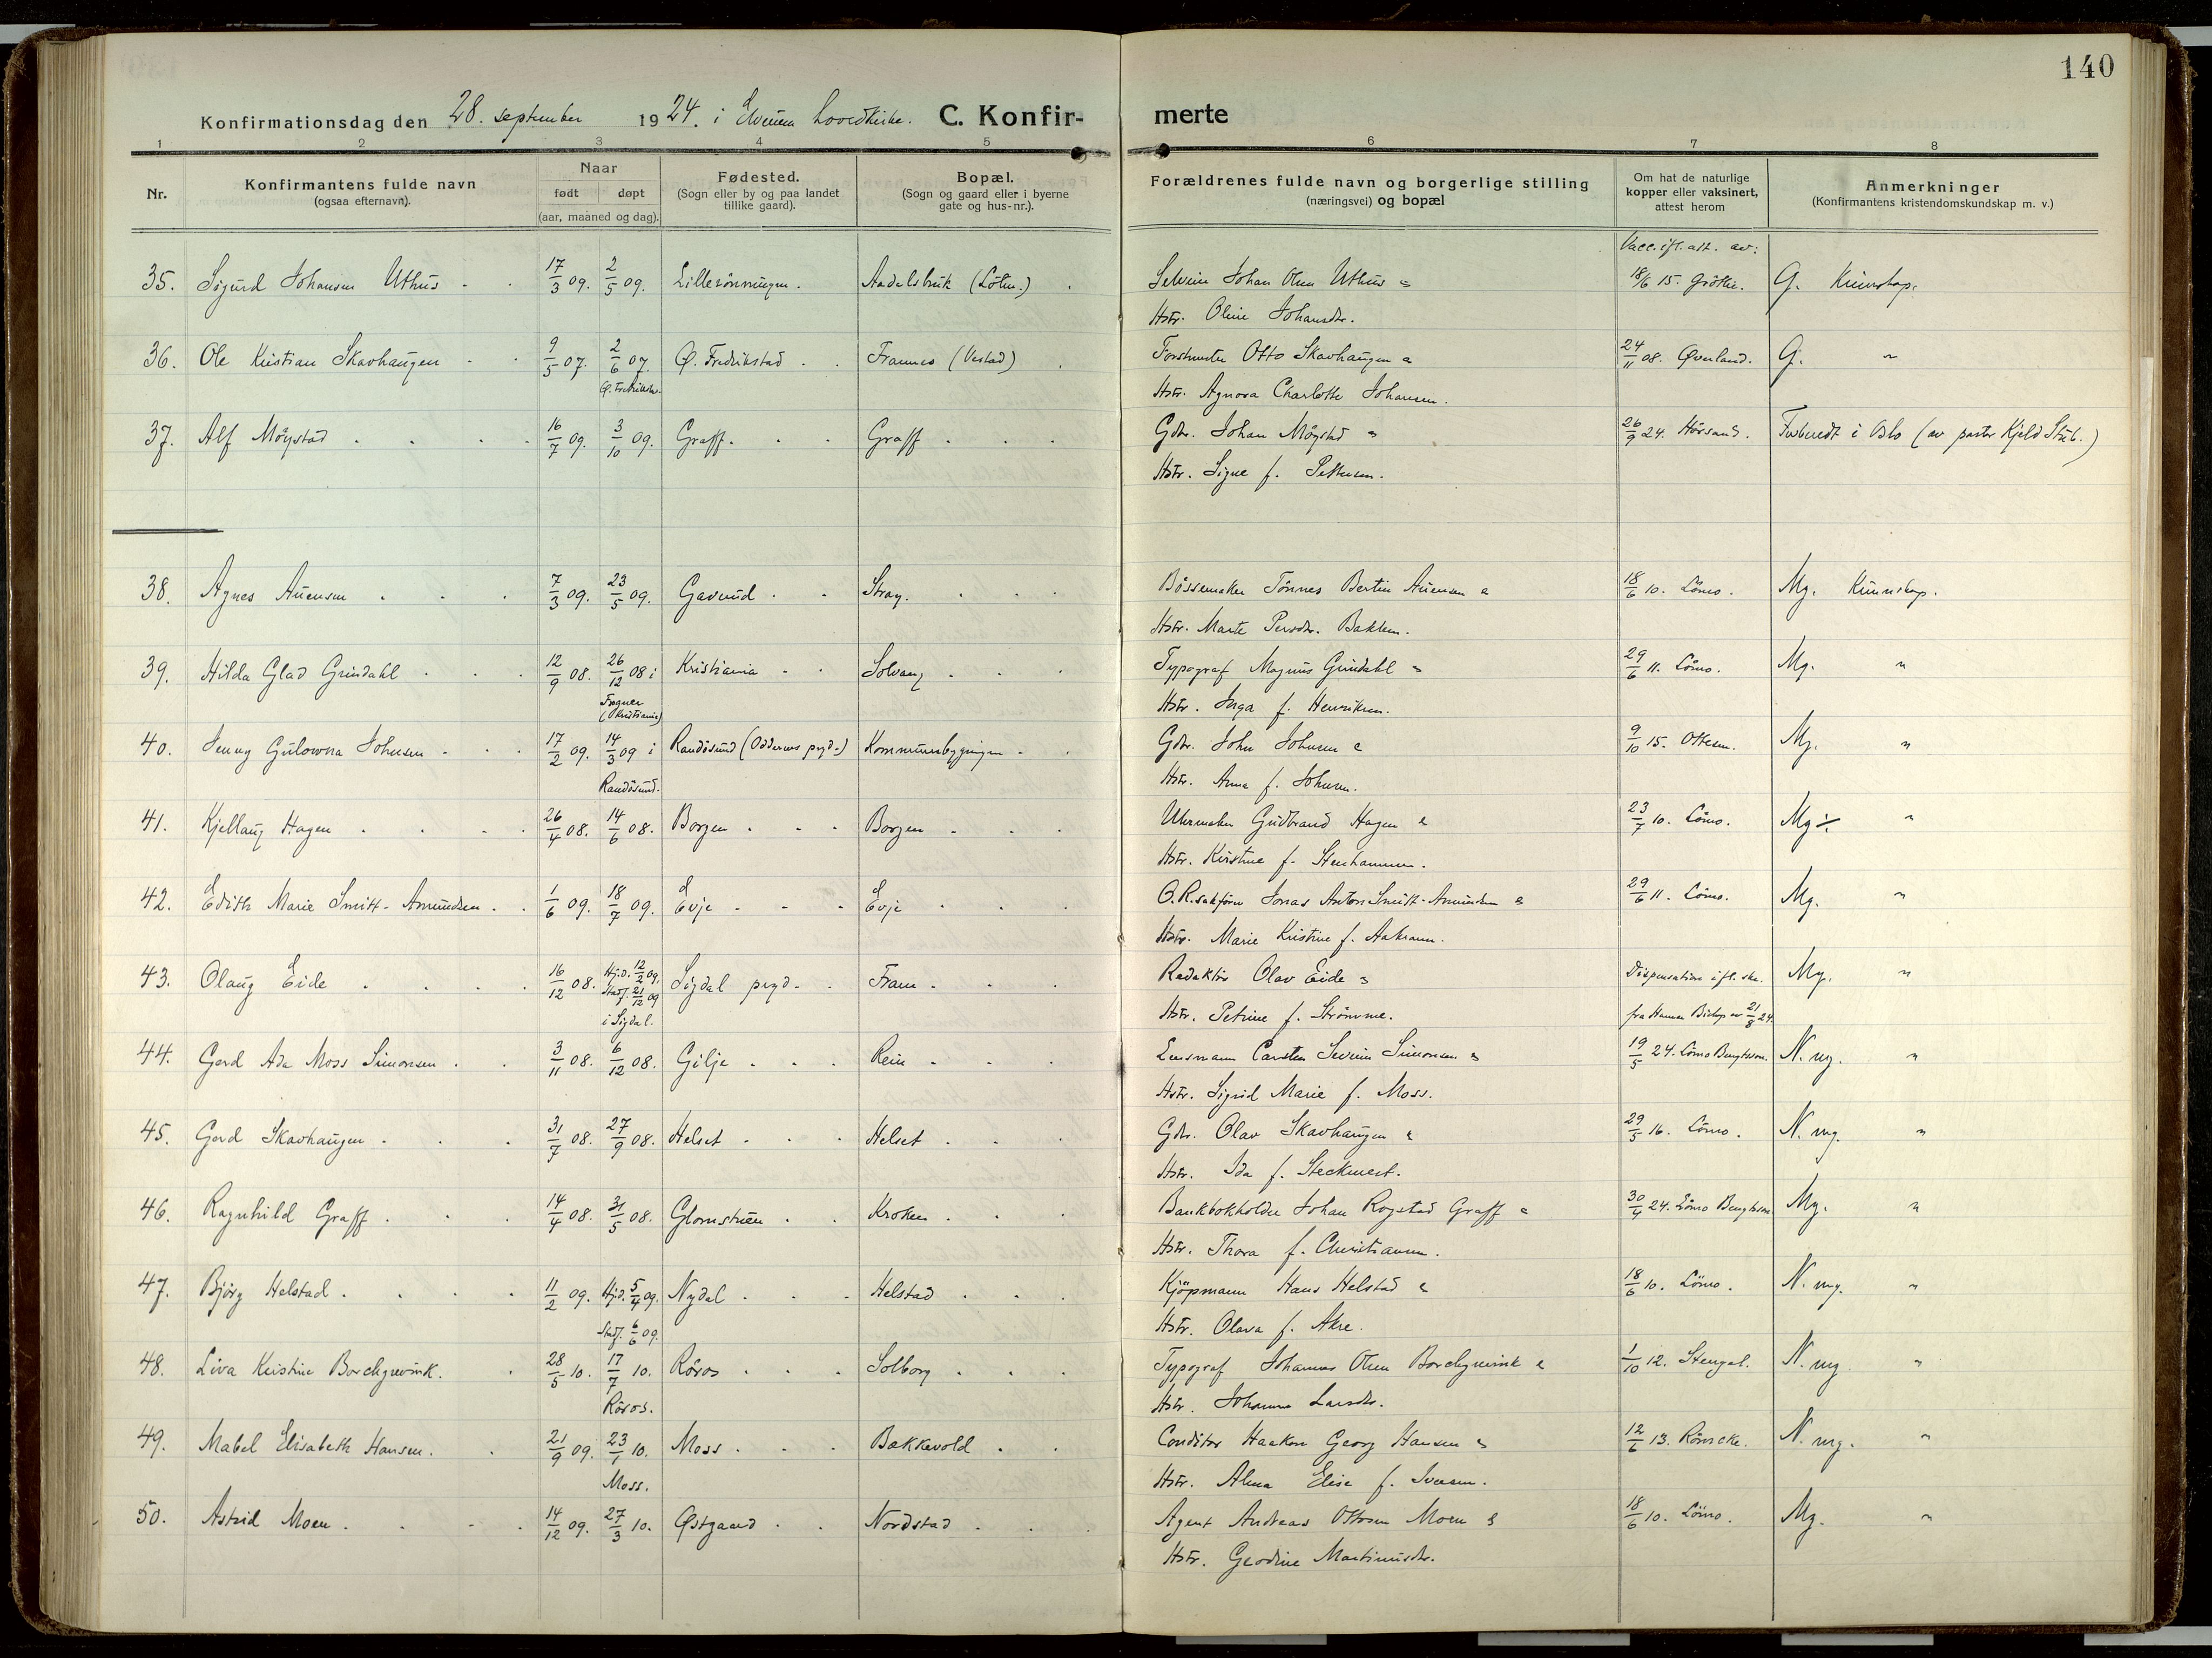 140
Konfirmationsdag den 28. september 1924. i Elverum hovedkirke. C. Konfir- merte
1 2 3 4 5 6 7 8
Nr.
Konfirmantens fulde navn
(ogsaa efternavn).
Naar
født døpt
(aar, maaned og dag).
Fødested.
(Sogn eller by og paa landet
tillike gaard).
Bopæl.
(Sogn og gaard eller i byerne
gate og hus-nr.).
Forældrenes fulde navn og borgerlige stilling
(næringsvei) og bopæl
Om hat de naturlige
kopper eller vaksinert,
attest herom
Anmerkninger
(Konfirmantens kristendomskundskap m. v.)
Vacc. ifl. att. av:
35. Sigurd Johansen Uthus 17/3 09. 2/5 09. Lillerønningen. Aadalsbruk (Løten.) Selveier Johan Olsen Uthus & 18/6 15. Grøthe. G. Kunnskap.
Hstr. Oline Johansdtr.
36. Ole Kristian Skavhaugen 9/5 07. 2/6 07. Ø. Fredrikstad. Framnes (Vestad) Forstmester Otto Skavhaugen & 24/11 08. Øverland. G. "
Ø. Fredrikstad.
Hstr. Agnora Charlotte Johansen.
37. Alf Møystad 16/7 09. 3/10 09. Graff. Graff Gdbr. Johan Møystad & 26/9 24. Hørsand. Forberedt i Oslo (av pastor Kjeld Stub.)
Hstr. Signe f. Pettersen.
38. Agnes Auensen 7/3 09. 23/5 09. Gavund Stray. Bøssemaker Tønnes Bertin Auensen & 18/6 10. Lömo. Mg. Kunnskap.
Hstr. Marte Persdtr. Bakken.
39. Hilda Glad Grindahl 12/9 08. 26/12 08 i Kristiania Solvang Typograf Magnus Grindahl & 29/6 11. Lömo. Mg. "
Frogner
(Kristiania)
Hstr. Inga f. Henriksen.
40. Jenny Gulowna Johnsen 17/2 09. 14/3 09 i Randøsund (Oddernes prgd.) Kommunebygningen Gdbr. John Johnsen & 9/10 15. Ottesen. Mg. "
Randøsund.
Hstr. Anna f. Johnsen.
41. Kjellaug Hagen 26/4 08. 14/6 08. Borgen Borgen Uhrmaker Gudbrand Hagen & 23/7 10. Lömo. Mg ÷ "
Hstr. Kristine f. Stenhammer.
42. Edith Marie Smitt-Amundsen 1/6 09. 18/7 09. Evje Evje O. R. sakfører Jonas Anton Smitt-Amundsen & 29/6 11. Lömo. Mg. "
Hstr. Marie Kristine f. Aakrann.
43. Olaug Eide 16/12 08. Hj.d. 12/2 09. Sigdal prgd. Fram Redaktør Olav Eide & Dispensation ifl. skr. Mg. "
Stadf. 21/12 09
i Sigdal.
Hstr. Petrine f. Strömme. fra Hamar Bisdop av 21/8 24.
44. Gerd Ada Moss Simonsen 3/11 08. 6/12 08. Gilje Rein Lensmann Carsten Severin Simonsen & 19/5 24. Lömo Bengtsson. N. mg. "
Hstr. Sigrid Marie f. Moss.
45. Gerd Skavhaugen 31/7 08. 27/9 08. Helset Helset Gdbr. Olav Skavhaugen & 29/5 16. Lömo. N. mg. "
Hstr. Ida f. Steckmest.
46. Ragnhild Graff 14/4 08. 31/5 08. Glomstuen Kroken Bankbokholder Johan Rogstad Graff & 30/4 24. Lömo Bengtsson Mg. "
Hstr. Thora f. Christiansen.
47. Bjørg Helstad 11/2 09. Hj.d. 5/4 09. Nydal Helstad Kjøpmann Hans Helstad & 18/6 10. Lömo. N. mg. "
Stadf. 6/6 09.
Hstr. Olava f. Akre.
48. Liva Kristine Borchgrevink. 28/5 10. 17/7 10. Röros Solborg Typograf Johannes Olsen Borchgrevink & 1/10 12. Stengel. N. mg. "
Röros.
Hstr. Johanne Larsdtr.
49. Mabel Elisabeth Hansen. 21/9 09. 23/1 10. Moss Bakkevold Conditor Haakon Georg Hansen & 12/6 13. Rönneke. N. mg. "
Moss.
Hstr. Alma Elise f. Iversen.
50. Astrid Moen 14/12 09. 27/3 10. Østgaard Nordstad Agent Andreas Ottosen Moen & 18/6 10. Lömo. Mg. "
Hstr. Gerdine Martinusdtr.